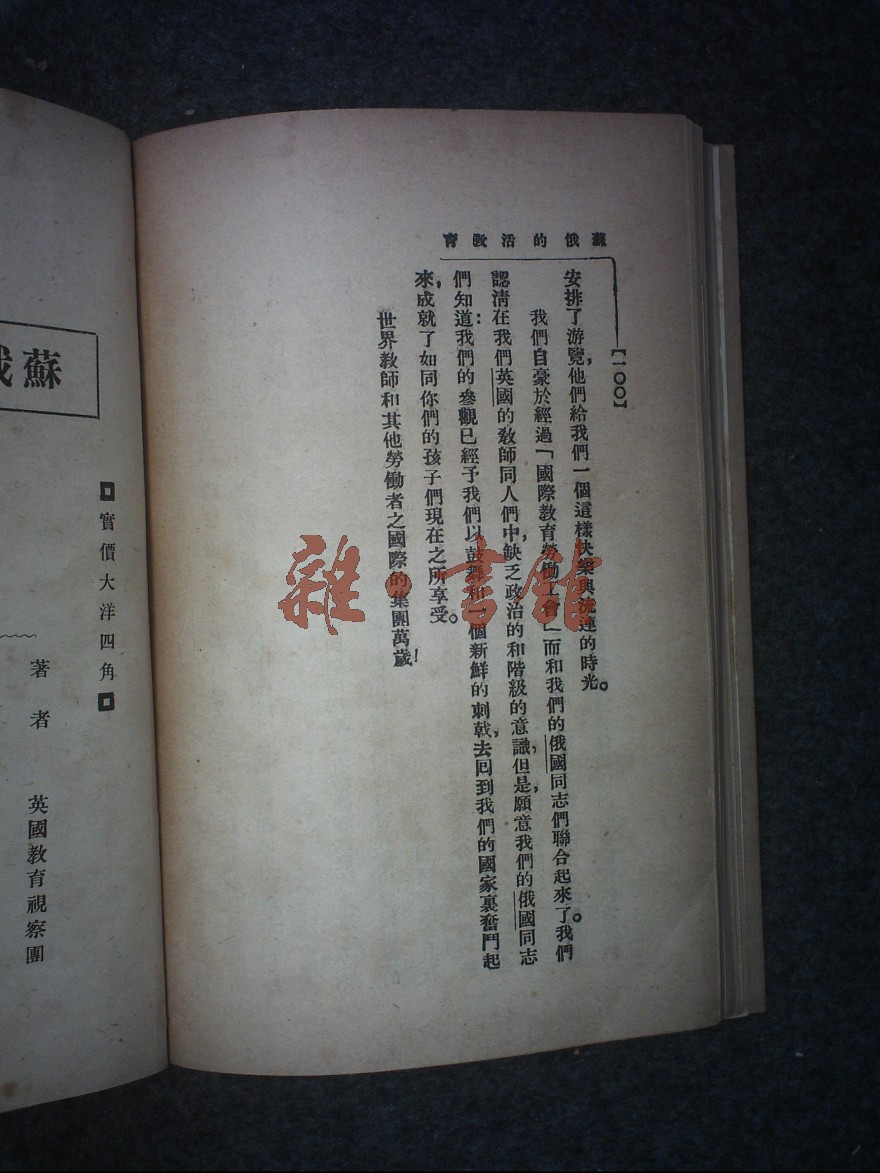 蘇俄的活敎育
【一〇〇】
安排了游覽，他們給我們一個這樣快樂與流連的時光。
我們自豪於經過「國際教育勞働工會」而和我們的俄國同志們聯合起來了。我們
認淸在我們英國的敎師同人們中，缺乏政治的和階級的意識，但是，願意我們的俄國同志
們知道：我們的參觀已經予我們以鼓舞和一個新鮮的刺戟，去回到我們的國家裏奮鬥起
來，成就了如同你們的孩子們現在之所享受。
世界敎師和其他勞働者之國際的集團萬歲！
蘇俄
實價大洋四角
著者 英國敎育視察團
雜·書館